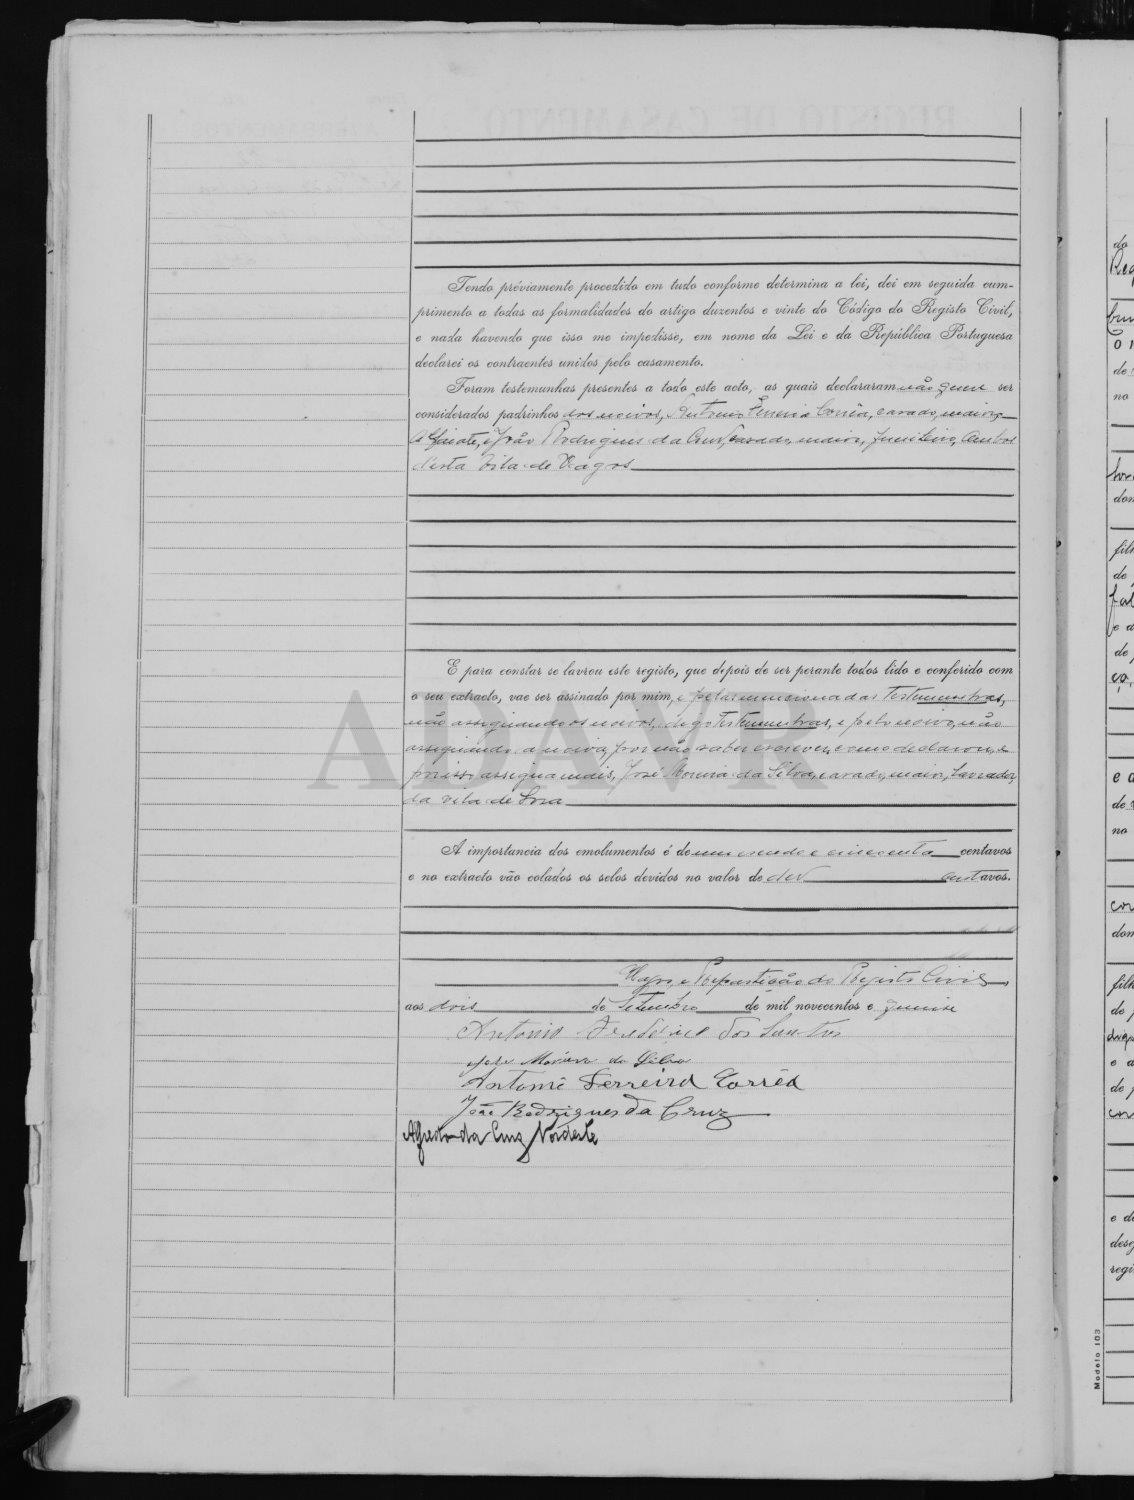 Tendo préviamente procedido em tudo conforme determina a lei, dei em seguida cum-
primento a todas as formalidades do artigo duzentos e vinte do Código do Registo Civil,
e nada havendo que isso me impedisse, em nome da Lei e da República Portuguesa
declarei os contraentes unidos pelo casamento.
Foram testemunhas presentes a todo este acto, as quais declararam não quem ser
considerados padrinhos dos noivos, Antonio Ferreira Corrêa, casado, maior,
Alfaiate, e João Rodrigues da Cruz, casado, maior, funileiro, ambos
desta Vila de Vagos
E para constar se lavrou este registo, que depois de ser perante todos lido e conferido com
o seu extracto, vae ser assinado por mim, e pelas mencionadas testemunhas,
não assignando os noivos, digo testemunhas, e pelo noivo, não
assignando a noiva, por não saber escrever, como declarou, e
por isso assigna mais, José Moreira da Silva, casado, maior, lavrador,
da vila de Soza
A importancia dos emolumentos é de um escudo e cincoenta centavos
e no extracto vão colados os selos devidos no valor de dez centavos.
Vagos e Repartição do Registo Civil,
aos dois de Setembro de mil novecentos e quinze
Antonio Frederico dos Santos
José Moreira da Silva
Antonio Ferreira Corrêa
João Rodrigues da Cruz
Alfredo da Cruz Nordeste
ADAVR
Modelo 103